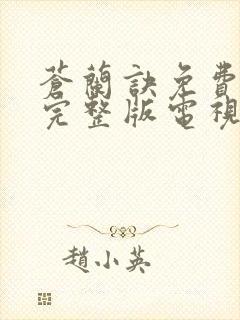 蒼蘭訣免費
完整版電視
趙小英